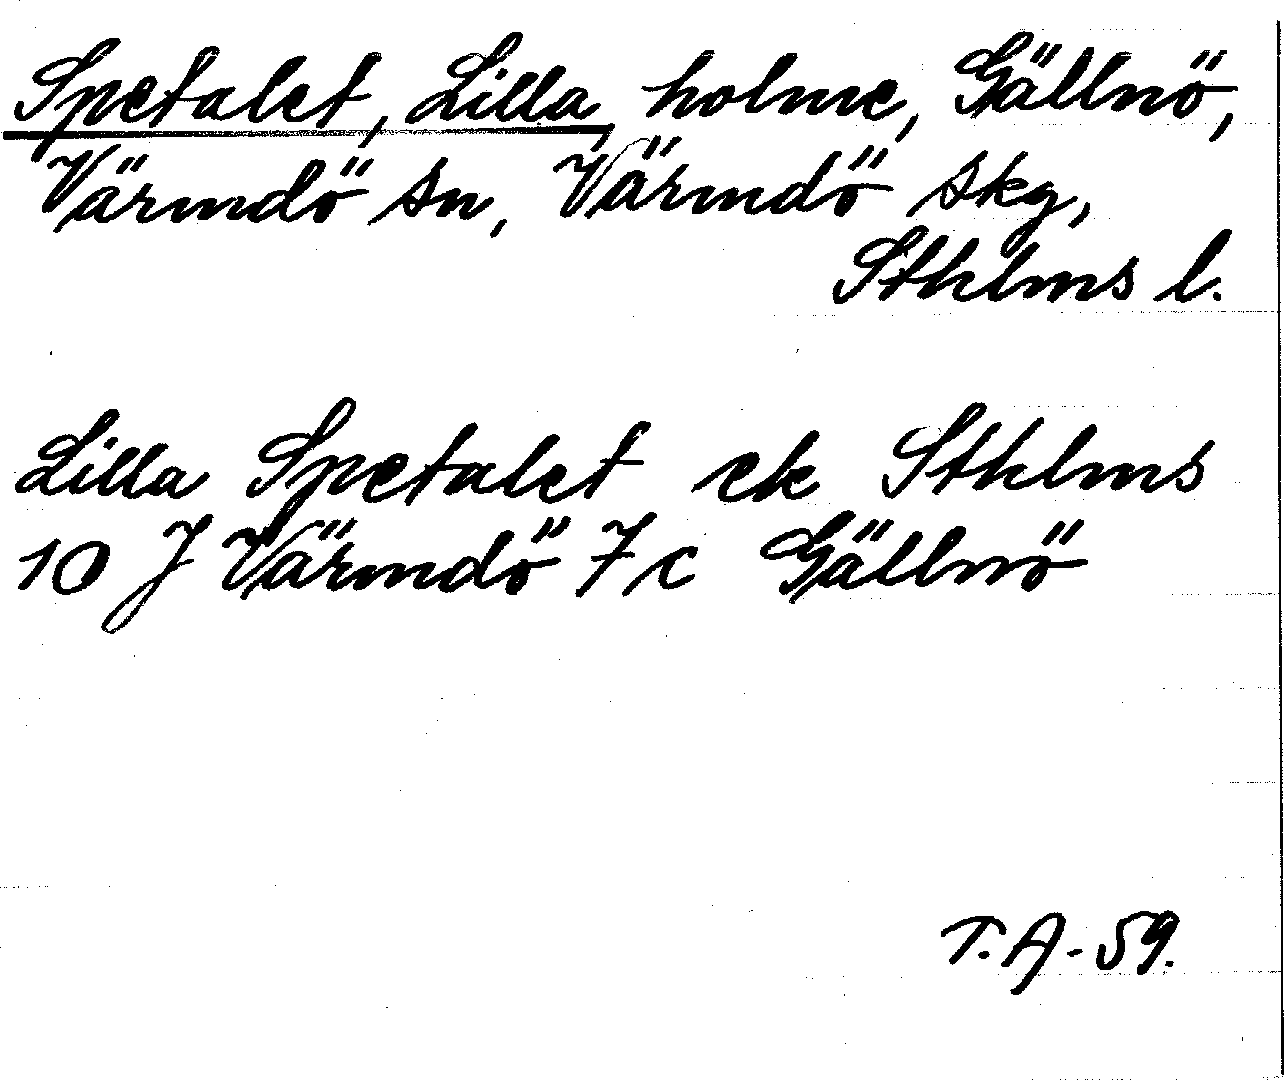 Spetalet, Lilla, holme, Gällnö,
Värmdö sn, Värmdö skg,
Sthlms l.
Lilla Spetalet ek Sthlms
10 J Värmdö 7c Gällnö
T.A-59.